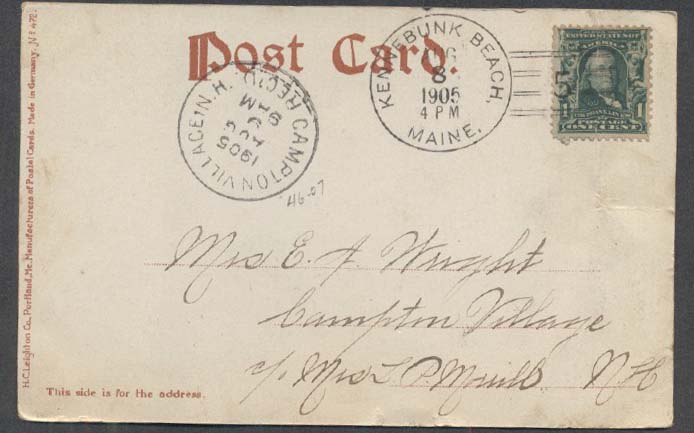 Post Card.
KENNEBUNK BEACH,
AUG
8
1905
4 PM
MAINE.
CAMPTON VILLAGE, N.H.
REC'D.
9 AM
AUG
1905
UNITED STATES OF
AMERICA
POSTAGE
ONE CENT
46-07
Mrs E. A. Wright
Campton Village
c/o Mrs L P N H
This side is for the address.
H.C. Leighton Co., Portland, Me. Manufacturers of Postal Cards. Made in Germany. Nº